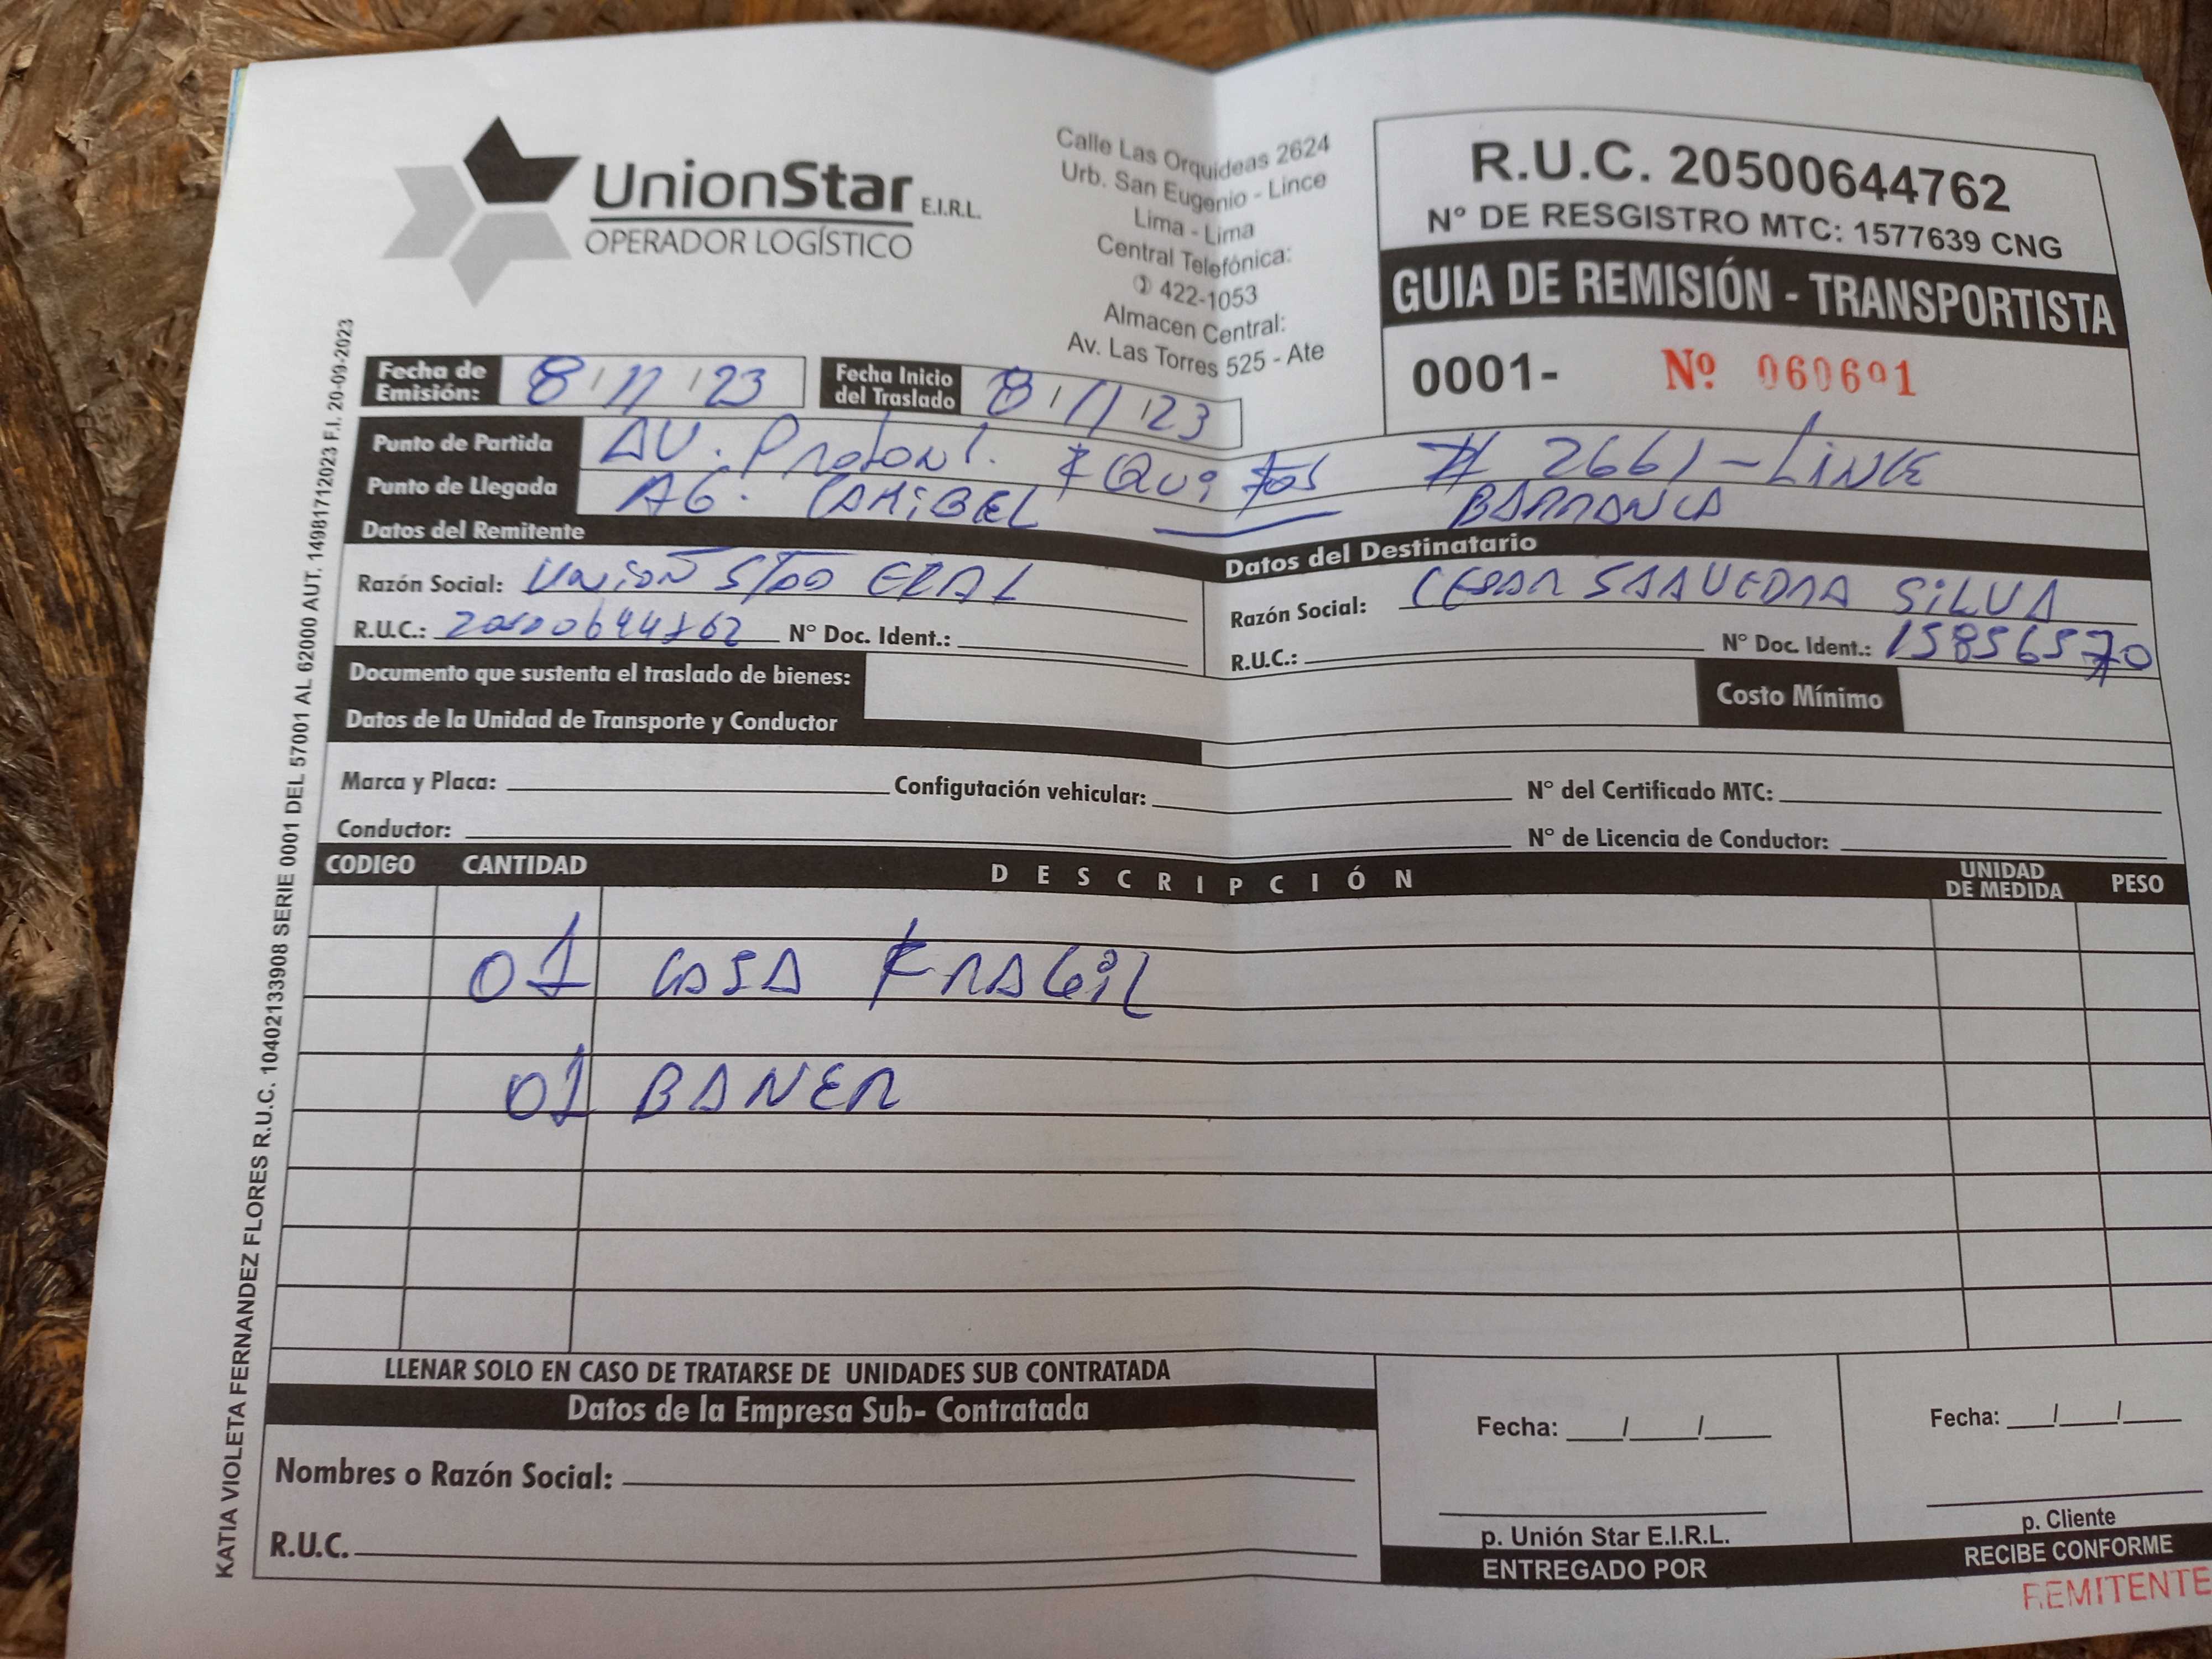 UnionStar E.I.R.L.
OPERADOR LOGÍSTICO
Calle Las Orquideas 2624
Urb. San Eugenio - Lince
Lima - Lima
Central Telefónica:
422-1053
Almacen Central:
Av. Las Torres 525 - Ate
R.U.C. 20500644762
N° DE RESGISTRO MTC: 1577639 CNG
GUIA DE REMISIÓN - TRANSPORTISTA
0001- Nº 060691
Fecha de Emisión: 8/11/23 Fecha Inicio del Traslado 8/11/23
Punto de Partida AV. # 2661-LINCE
Punto de Llegada AG. BARRANCA
Datos del Remitente
Datos del Destinatario
Razón Social: UNION
R.U.C.: N° Doc. Ident.:
Razón Social: CESAR SAAVEDRA SILVA
R.U.C.: N° Doc. Ident.: 15856570
Documento que sustenta el traslado de bienes:
Costo Mínimo
Datos de la Unidad de Transporte y Conductor
Marca y Placa: Configutación vehicular: N° del Certificado MTC:
Conductor: N° de Licencia de Conductor:
CODIGO CANTIDAD DESCRIPCIÓN UNIDAD DE MEDIDA PESO
01 CAJA FRAGIL
01 BANER
LLENAR SOLO EN CASO DE TRATARSE DE UNIDADES SUB CONTRATADA
Datos de la Empresa Sub- Contratada
Nombres o Razón Social:
R.U.C.
Fecha: / /
p. Unión Star E.I.R.L.
ENTREGADO POR
Fecha: / /
p. Cliente
RECIBE CONFORME
REMITENTE
KATIA VIOLETA FERNANDEZ FLORES R.U.C. 10402133908 SERIE 0001 DEL 57001 AL 62000 AUT. 14981712023 F.I. 20-09-2023